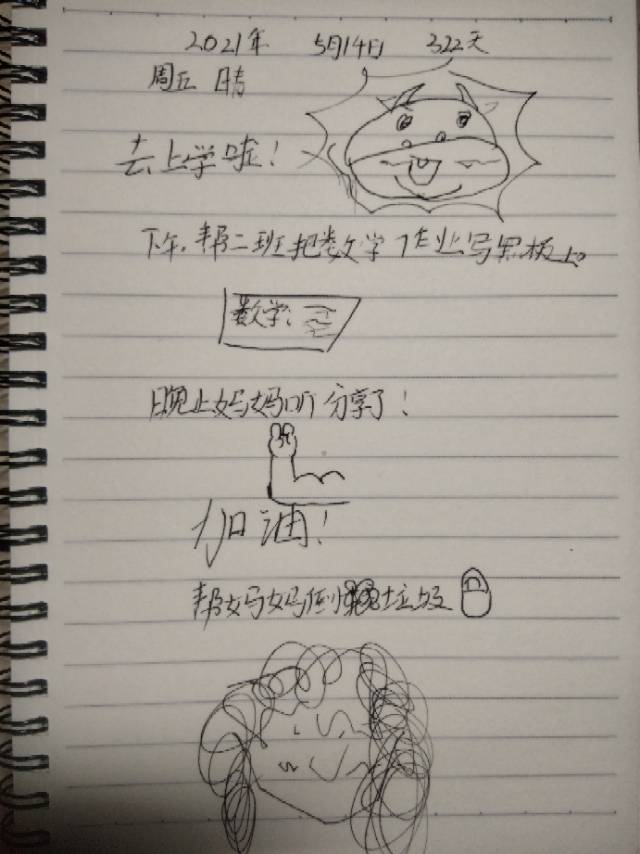 2021年 5月14日 322天
周五 晴
去上学啦！
下午，帮二班把数学作业写黑板上。
数学：
晚上妈妈听分享了！
加油！
帮妈妈倒垃圾